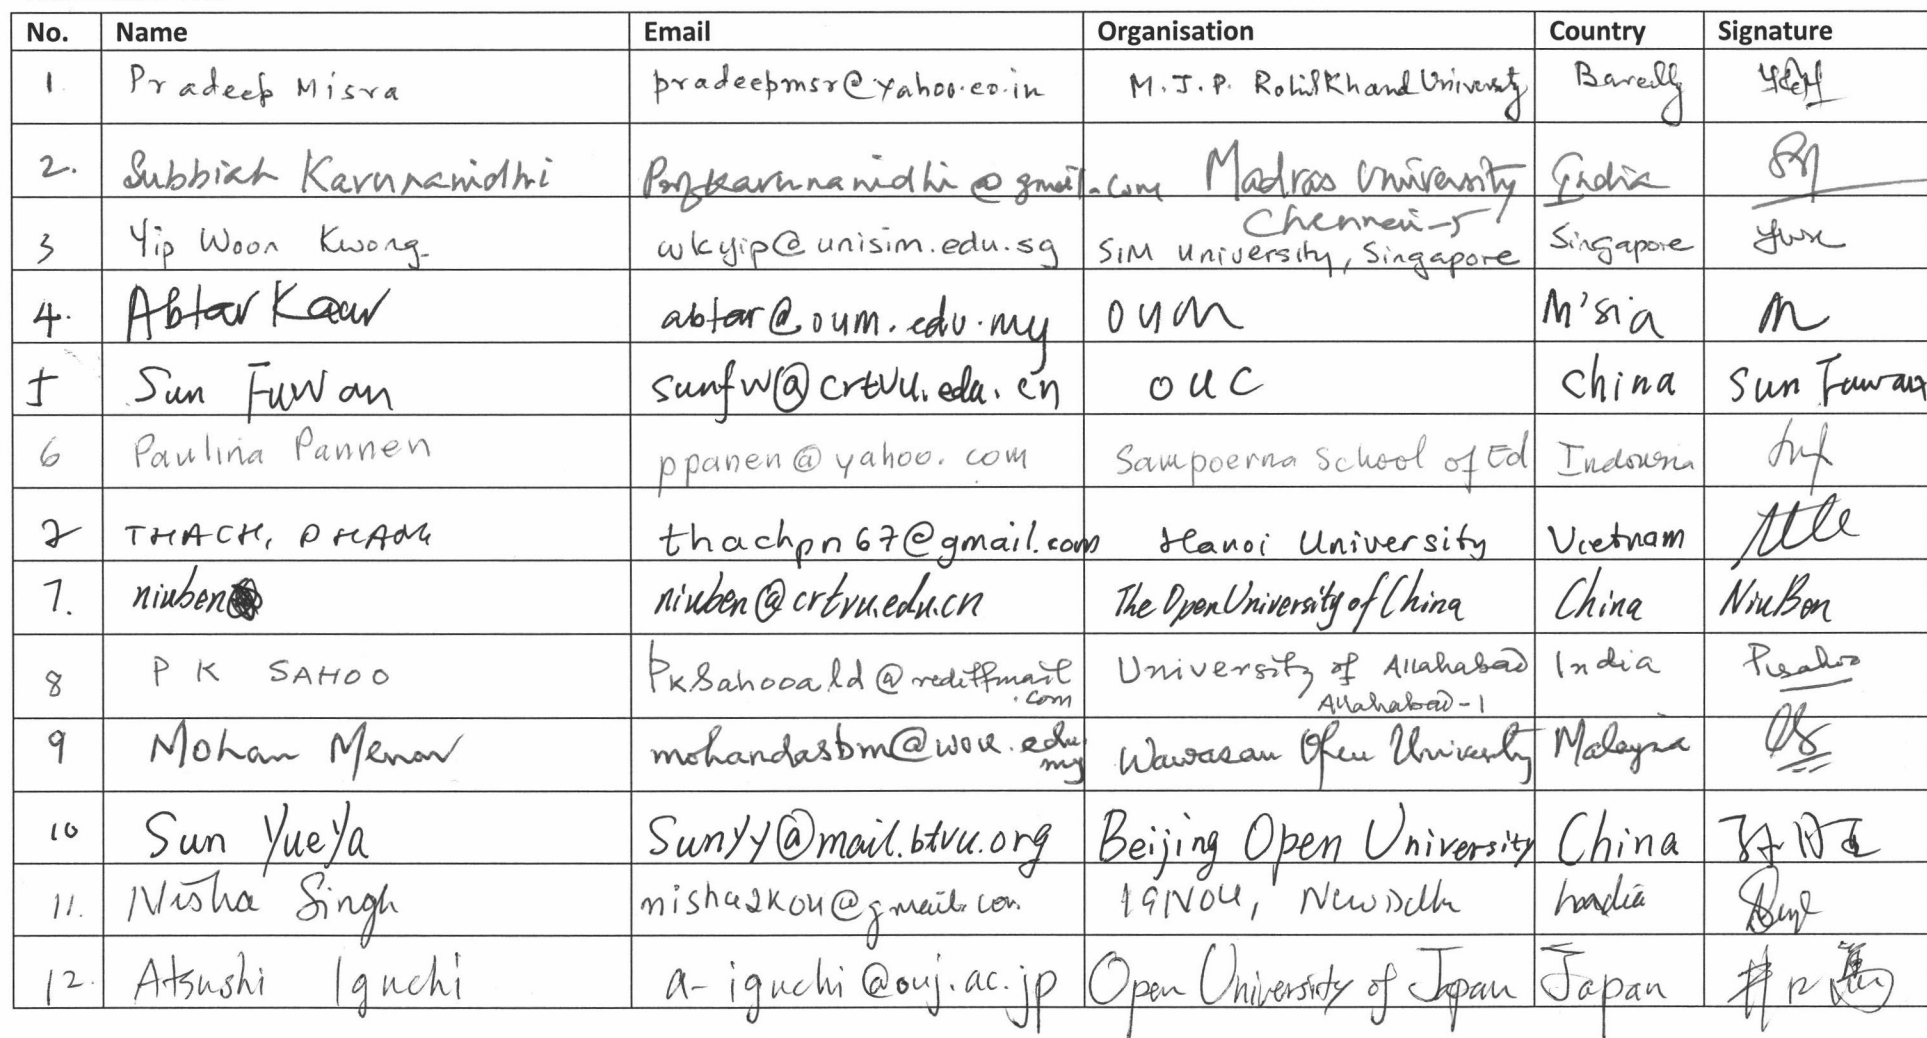 No. Name Email Organisation Country Signature
1 Pradeep Misra pradeepmsr@yahoo.co.in M.J.P. Rohilkhand University Bareilly
2. Subbiah Karunanidhi Profkarunanidhi@gmail.com Madras University India
Chennai-5
3 Yip Woon Kwong wkyip@unisim.edu.sg SIM University, Singapore Singapore
4. Abtar Kaur abtar@oum.edu.my OUM M'sia
5 Sun FuWan sunfw@crtvu.edu.cn OUC China Sun Fuwan
6 Paulina Pannen ppanen@yahoo.com Sampoerna School of Ed Indonesia
7 THACH, PHAM thachpn67@gmail.com Hanoi University Vietnam
7. niuben niuben@crtvu.edu.cn The Open University of China China NiuBen
8 P K SAHOO PKSahooald@rediffmail University of Allahabad India Pksahoo
.com Allahabad-1
9 Mohan Menon mohandasbm@wou.edu Wawasan Open University Malaysia
my
10 Sun YueYa Sunyy@mail.btvu.org Beijing Open University China
11. Nisha Singh nisha2kou@gmail.com IGNOU, New Delhi India
12. Atsushi Iguchi a-iguchi@ouj.ac.jp Open University of Japan Japan 井口篤